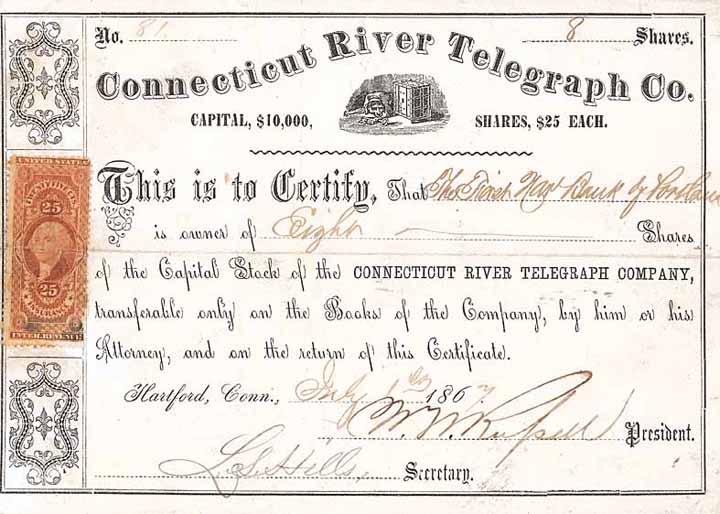 No. 81 8 Shares.
Connecticut River Telegraph Co.
CAPITAL, $10,000, SHARES, $25 EACH.
This is to Certify, That The First Nat Bank of
is owner of Eight Shares
of the Capital Stock of the CONNECTICUT RIVER TELEGRAPH COMPANY,
transferable only on the Books of the Company, by him or his
Attorney, and on the return of this Certificate.
Hartford, Conn., July 186
President.
L. S. Hills, Secretary.
UNITED STATES
25
25
INSURANCE
INTER. REVENUE